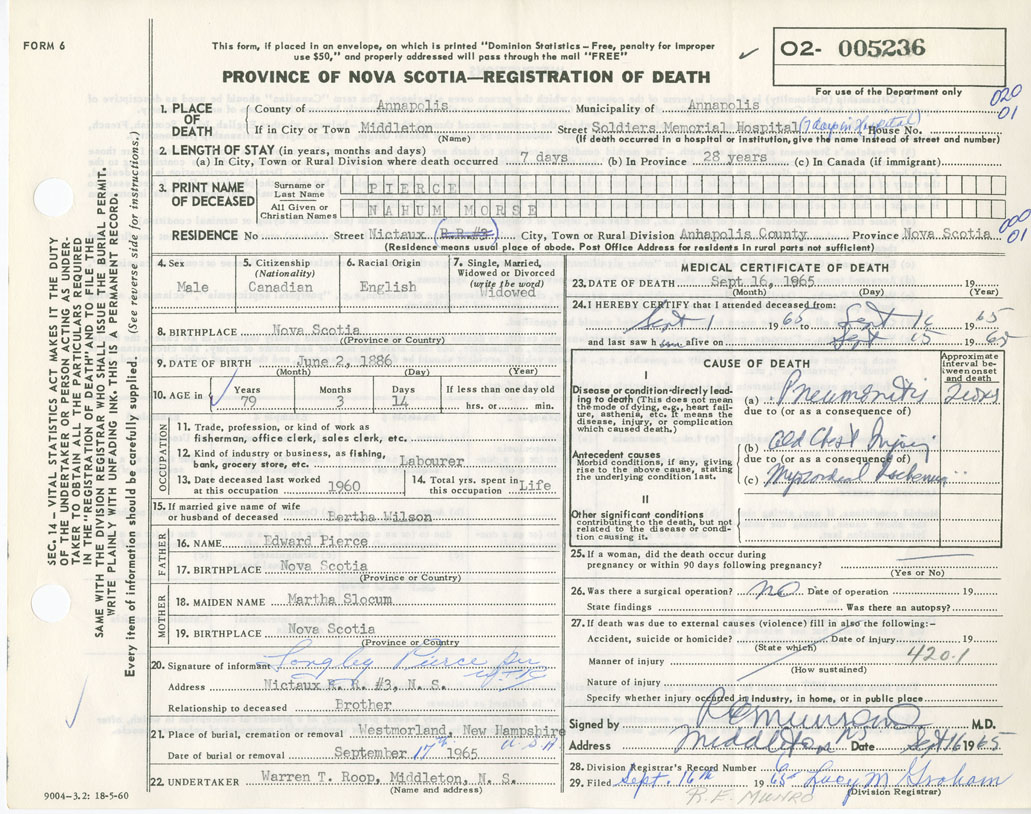 FORM 6
This form, if placed in an envelope, on which is printed "Dominion Statistics – Free, penalty for improper
use $50," and properly addressed will pass through the mail "FREE"
PROVINCE OF NOVA SCOTIA—REGISTRATION OF DEATH
02- 005236
For use of the Department only
020
01
1. PLACE OF DEATH
County of Annapolis Municipality of Annapolis
If in City or Town Middleton Street Soldiers Memorial Hospital (7 days in Hospital) House No.
(Name) (If death occurred in a hospital or institution, give the name instead of street and number)
2. LENGTH OF STAY (in years, months and days)
(a) In City, Town or Rural Division where death occurred 7 days (b) In Province 28 years (c) In Canada (if immigrant)
3. PRINT NAME OF DECEASED
Surname or Last Name PIERCE
All Given or Christian Names NAHUM MORSE
000
01
RESIDENCE No Street Nictaux (R.R.#3) City, Town or Rural Division Annapolis County Province Nova Scotia
(Residence means usual place of abode. Post Office Address for residents in rural parts not sufficient)
4. Sex
Male
5. Citizenship (Nationality)
Canadian
6. Racial Origin
English
7. Single, Married, Widowed or Divorced (write the word)
Widowed
8. BIRTHPLACE Nova Scotia
(Province or Country)
9. DATE OF BIRTH June 2, 1886
(Month) (Day) (Year)
10. AGE in Years Months Days If less than one day old
79 3 14 hrs. or min.
OCCUPATION
11. Trade, profession, or kind of work as
fisherman, office clerk, sales clerk, etc.
12. Kind of industry or business, as fishing,
bank, grocery store, etc. Labourer
13. Date deceased last worked
at this occupation 1960
14. Total yrs. spent in
this occupation Life
15. If married give name of wife
or husband of deceased Bertha Wilson
FATHER
16. NAME Edward Pierce
17. BIRTHPLACE Nova Scotia
(Province or Country)
MOTHER
18. MAIDEN NAME Martha Slocum
19. BIRTHPLACE Nova Scotia
(Province or Country)
20. Signature of informant Longley Pierce
Address Nictaux R. R. #3, N. S.
Relationship to deceased Brother
21. Place of burial, cremation or removal Westmorland, New Hampshire
U S A
Date of burial or removal September 17th 1965
22. UNDERTAKER Warren T. Roop, Middleton, N. S.
(Name and address)
9004-3.2: 18-5-60
MEDICAL CERTIFICATE OF DEATH
23. DATE OF DEATH Sept 16, 1965 19
(Month) (Day) (Year)
24. I HEREBY CERTIFY that I attended deceased from:
Sept 1 1965 to Sept 16 1965
and last saw him alive on Sept 15 1965
CAUSE OF DEATH
Approximate interval between onset and death
I
Disease or condition directly leading to death (This does not mean the mode of dying, e.g., heart failure, asthenia, etc. It means the disease, injury, or complication which caused death.)
(a) Pneumonitis
due to (or as a consequence of)
Antecedent causes
Morbid conditions, if any, giving rise to the above cause, stating the underlying condition last.
(b) Old Chest Injury
due to (or as a consequence of)
(c) Myocardial Ischemia
II
Other significant conditions
contributing to the death, but not related to the disease or condition causing it.
25. If a woman, did the death occur during
pregnancy or within 90 days following pregnancy?
(Yes or No)
26. Was there a surgical operation? no Date of operation 19
State findings Was there an autopsy?
27. If death was due to external causes (violence) fill in also the following:–
Accident, suicide or homicide? Date of injury 19
(State which)
420.1
Manner of injury
(How sustained)
Nature of injury
Specify whether injury occurred in industry, in home, or in public place
Signed by M.D.
Address Middleton NS Date Sept 16 1965
28. Division Registrar's Record Number
29. Filed Sept. 16th 1965 Lucy M Graham
(Division Registrar)
R. E. MUNRO
SEC. 14 – VITAL STATISTICS ACT MAKES IT THE DUTY
OF THE UNDERTAKER OR PERSON ACTING AS UNDER-
TAKER TO OBTAIN ALL THE PARTICULARS REQUIRED
IN THE "REGISTRATION OF DEATH" AND TO FILE THE
SAME WITH THE DIVISION REGISTRAR WHO SHALL ISSUE THE BURIAL PERMIT.
WRITE PLAINLY WITH UNFADING INK. THIS IS A PERMANENT RECORD.
Every item of information should be carefully supplied. (See reverse side for instructions.)